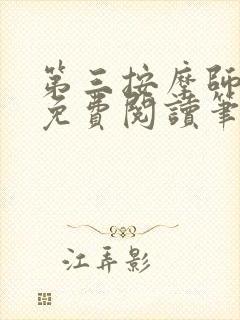 第三按摩師
免費閱讀筆
江弄影